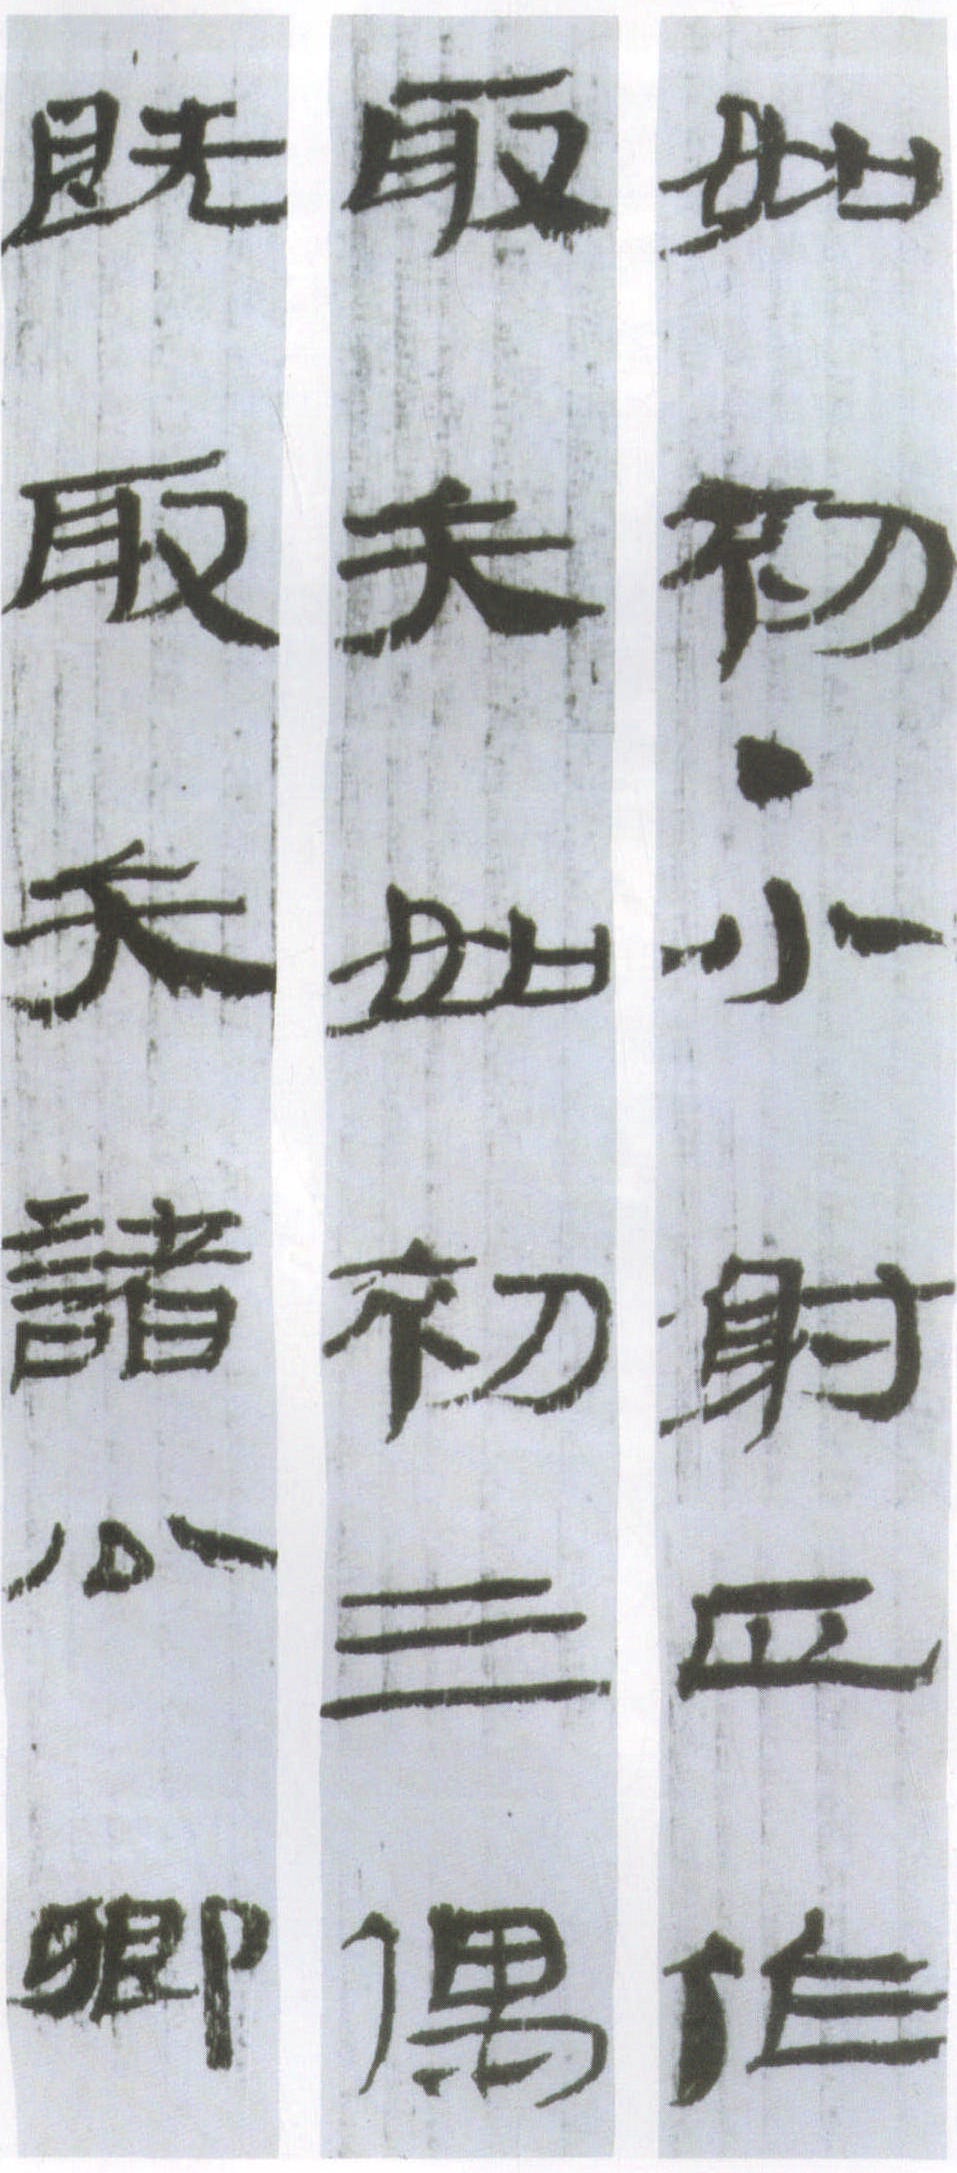 如初·小射正作
取矢如初三偶
既取矢諸公卿